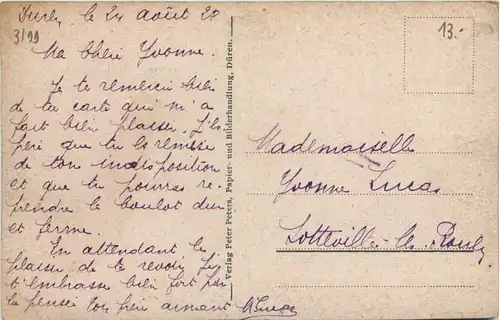 le 24 août 20
3/99
Ma Chère Yvonne.
Je te remercie bien
de ta carte qui m'a
fort bien plaisir. J'es
père que tu es remise
de ton indisposition
et que tu pourras re
prendre le boulot dur
et ferme.
En attendant le
plaisir de te revoir, je
t'embrasse bien fort par
la pensée Ton frère aimant
Lucas
Verlag Peter Peters, Papier- und Bilderhandlung, Düren.
13.-
Mademoiselle
Yvonne Lucas
Sotteville-les-Rouen